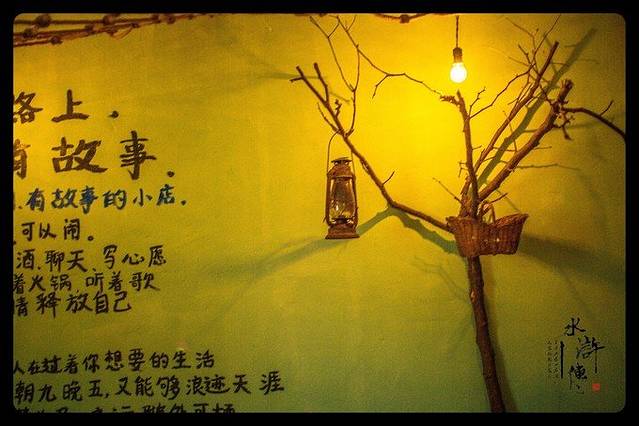 路上.
有故事.
、有故事的小店.
可以闹。
酒、聊天、写心愿
着火锅,听着歌
情释放自己
人在过着你想要的生活
朝九晚五,又能够浪迹天涯
水浒传